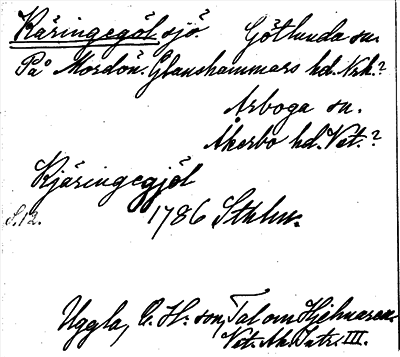 Käringegöl sjö. Götlunda sn.
På Mordön. Glanshammars hd. Nrk.?
Arboga sn.
Åkerbo hd. Vst.?
Kjäringegjöl
S. 12. 1786 Sthlm.
Uggla, C. H:son, Tal om Hjelmaren.
Vet. Ak. Intr. III.